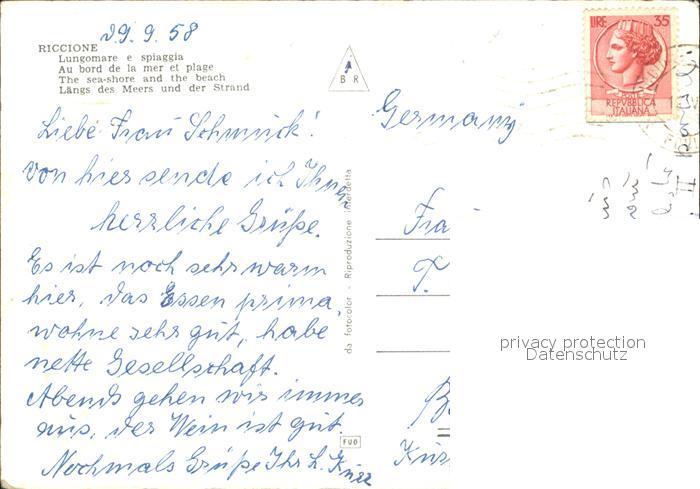 29.9.58
RICCIONE
Lungomare e spiaggia
Au bord de la mer et plage
The sea-shore and the beach
Längs des Meers und der Strand
BR
LIRE 35
POSTE
REPVBBLICA
ITALIANA
Germany
Liebe Frau Schmuck!
von hier sende ich Ihnen
herrliche Grüße.
Es ist noch sehr warm
hier, das Essen prima,
wohne sehr gut, habe
nette Gesellschaft.
Abends gehen wir immer
aus, der Wein ist gut.
Nochmals Grüße Ihr L.
da fotocolor - Riproduzione
Fra
T.
privacy protection
Datenschutz
FUO